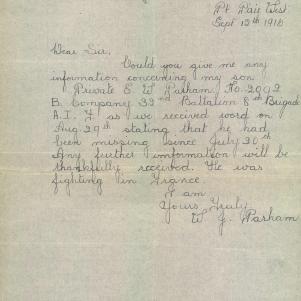 Pt Pirie West
Sept 12th 1916
Dear Sir,
Could you give me any
information concerning my son
Private E W Parham No. 2092
B Company 32nd Battalion 8th Brigade
A.I.F as we received word on
Aug 29th stating that he had
been missing since July 20th
Any further information will be
thankfully received. He was
fighting in France.
I am
Yours Truly
W J Parham